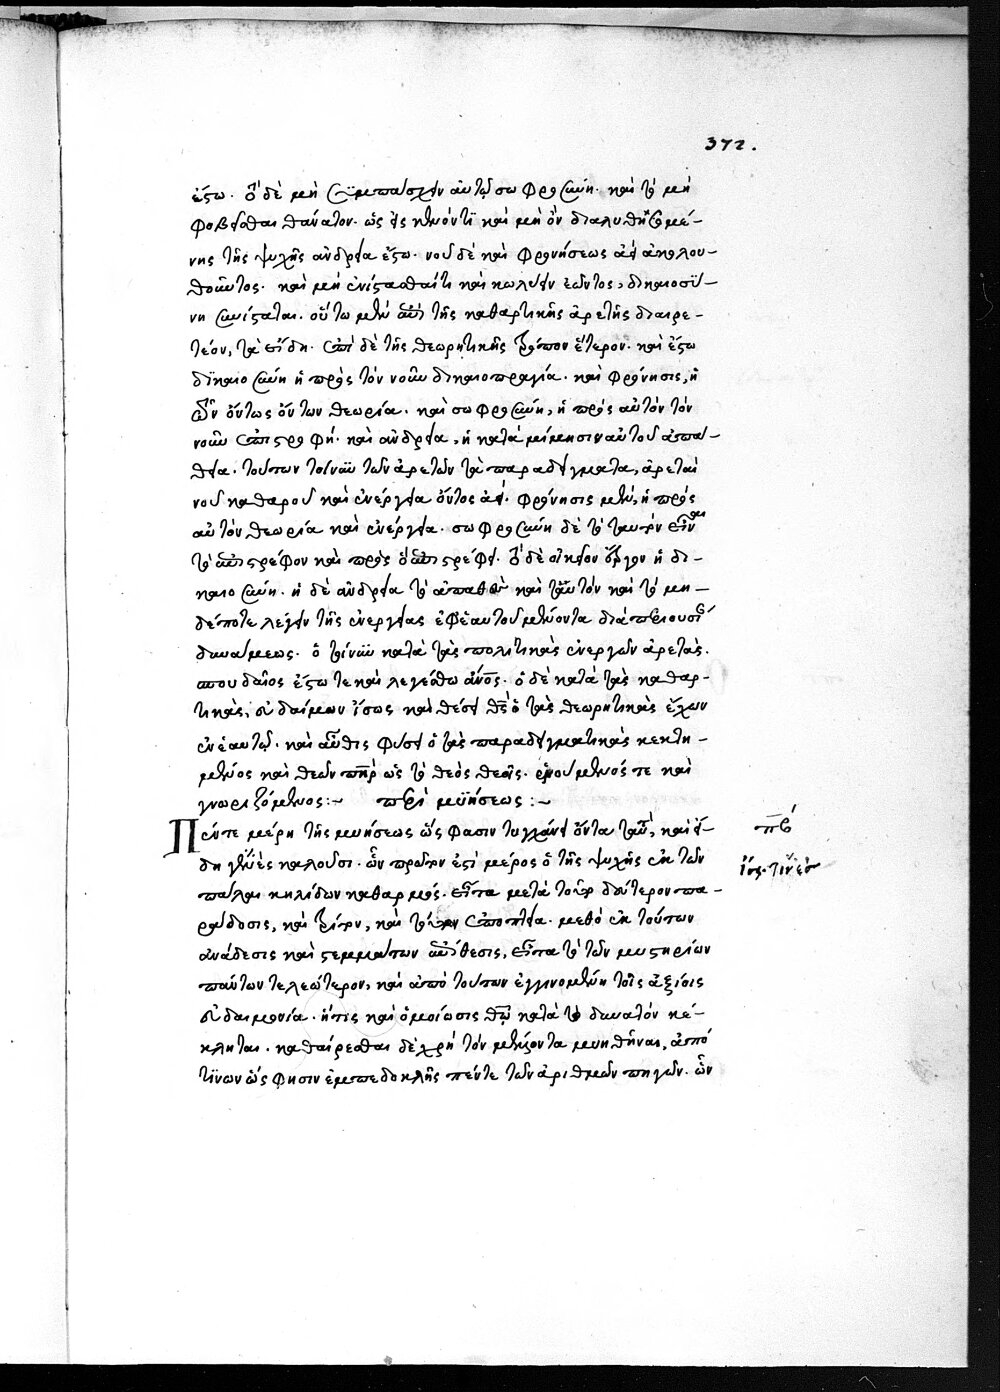 372.
ἔξω. ὁ δὲ μὴ συμπάσχειν αὐτῷ σωφροσύνη. καὶ τὸ μὴ
φοβεῖσθαι θάνατον. ὡς εἰς κενόν τι καὶ μὴ ὂν διαλυθησομέ-
νης τῆς ψυχῆς ἀνδρεία ἔξω. νοῦ δὲ καὶ φρονήσεως ἀεὶ ἀκολου-
θοῦντος. καὶ μὴ ἐνίστασθαί τι καὶ κωλύειν ἐῶντος, δικαιοσύ-
νη συνίσταται. οὕτω μὲν ἀπὸ τῆς καθαρτικῆς ἀρετῆς διαιρε-
τέον, τὰ εἴδη. ἐπὶ δὲ τῆς θεωρητικῆς τρόπον ἕτερον. καὶ ἔξω
δικαιοσύνη ἡ πρὸς τὸν νοῦν δικαιοπραγία. καὶ φρόνησις, ἡ
τῶν ὄντως ὄντων θεωρία. καὶ σωφροσύνη, ἡ πρὸς αὐτὸν τὸν
νοῦν ἐπιστροφή. καὶ ἀνδρεία, ἡ κατὰ μίμησιν αὐτοῦ ἀπά-
θεια. τούτων τοίνυν τῶν ἀρετῶν τὰ παραδείγματα, ἀρεταὶ
νοῦ καθαροῦ καὶ ἐνέργεια ὄντος ἀεί. φρόνησις μὲν, ἡ πρὸς
αὐτὸν θεωρία καὶ ἐνέργεια. σωφροσύνη δὲ τὸ ταυτὸν εἶναι
τὸ ἐπιστρέφον καὶ πρὸς ὃ ἐπιστρέφει. τὸ δὲ οἰκεῖον ἔργον ἡ δι-
καιοσύνη. ἡ δὲ ἀνδρεία τὸ ἀπαθὲς καὶ ταὐτὸν καὶ τὸ μη-
δέποτε λέγειν τῆς ἐνεργείας ἐφ' ἑαυτοῦ μένοντα διὰ περιουσίαν
δυνάμεως. ὁ τοίνυν κατὰ τὰς πολιτικὰς ἐνεργῶν ἀρετὰς.
σπουδαῖος ἔξω τε καὶ λεγέσθω ἄνος. ὁ δὲ κατὰ τὰς καθαρ-
τικὰς, εὐδαίμων ἴσως καὶ θεῖος θεὸς ὁ τὰς θεωρητικὰς ἔχων
ἐν ἑαυτῷ. καὶ αὖθις φύσει ὁ τὰς παραδειγματικὰς κεκτη-
μένος καὶ θεῶν πηρ ὡς τὸ θεὸς θεοῖς. ἑνούμενός τε καὶ
γνωριζόμενος:~ περὶ μυήσεως:~
Πέντε μέρη τῆς μυήσεως ὥς φασιν τυγχάνει ὄντα ταῦτα, καὶ
ἃς καλοῦσι. ὧν πρῶτον ἐστὶ μέρος ὁ τῆς ψυχῆς ἐκ τῶν
πάλαι κηλίδων καθαρμός. εἶτα μετὰ τοῦτο δεύτερον πα-
ράδοσις, καὶ τρίτον, καὶ ἐποπτεία. μεθὸ ἐκ τούτων
ἀνάδεσις καὶ στεμμάτων ἐπίθεσις, εἶτα τὸ τῶν μυστηρίων
πάντων τελεώτερον, καὶ ἀπὸ τούτων ἐγγινομένη τοῖς ἀξίοις
εὐδαιμονία. ἥτις καὶ ὁμοίωσις θῶ κατὰ τὸ δυνατὸν κέ-
κληται. καθαίρεσθαι δὲ χρὴ τὸν μέλλοντα μυηθῆναι, ἀπό
τινων ὥς φησιν ἐμπεδοκλῆς πέντε τῶν ἀριθμῶν πηγῶν. ὧν